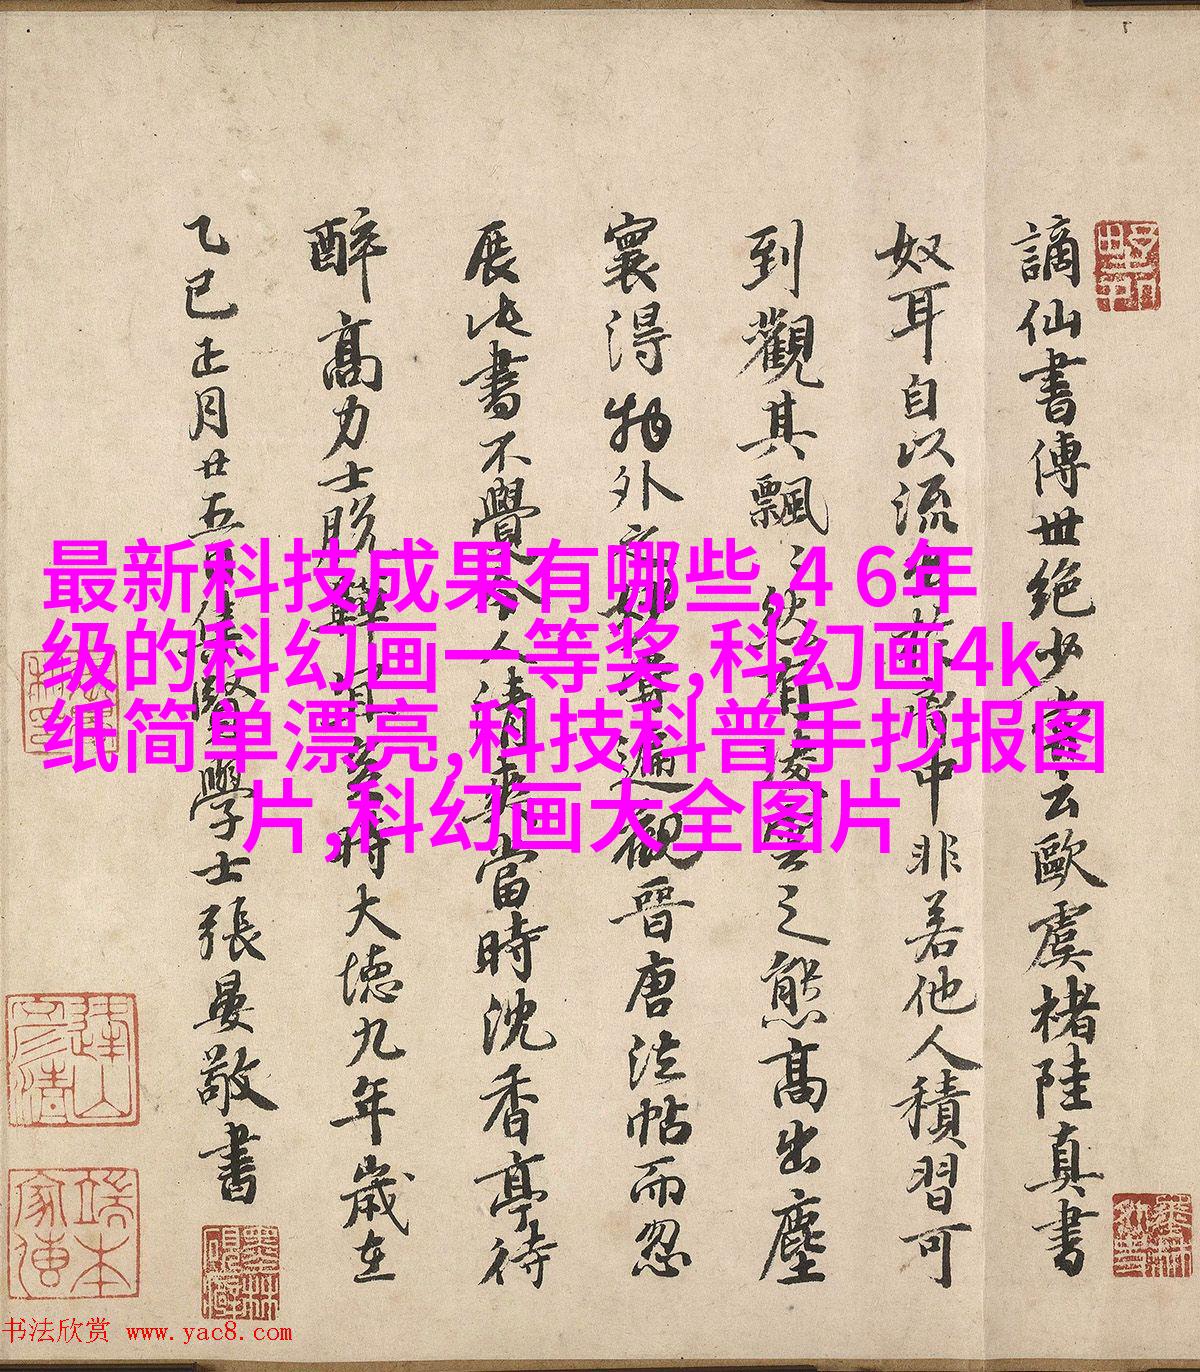 謫仙書傳世絕少嘗云歐虞褚陸真書
奴耳自以流出於胷中非若他人積習可
到觀其飄飄然有凌雲之態高出塵
寰得物外之妙嘗遍觀晉唐法帖而忽
展此書不覺令人清爽當時沈香亭待
醉高力士脫鞾時大德九年歲在
乙巳正月廿五日集賢學士張晏敬書
最新科技成果有哪些,4 6年
级的科幻画一等奖,科幻画4k
纸简单漂亮,科技科普手抄报图
片,科幻画大全图片
书法欣赏 www.yac8.com